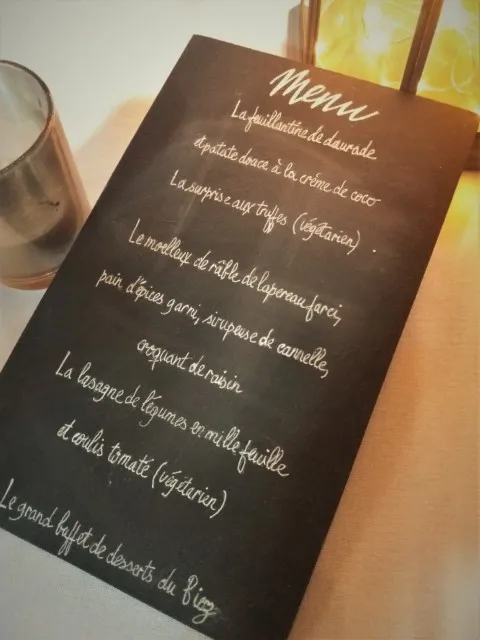 Menu
La feuillantine de daurade
et patate douce à la crème de coco
La surprise aux truffes (végétarien).
Le moelleux de râble de lapereau farci,
pain d'épices garni, sirupeuse de cannelle,
croquant de raisin
La lasagne de légumes en mille feuille
et coulis tomate (végétarien)
Le grand buffet de desserts du